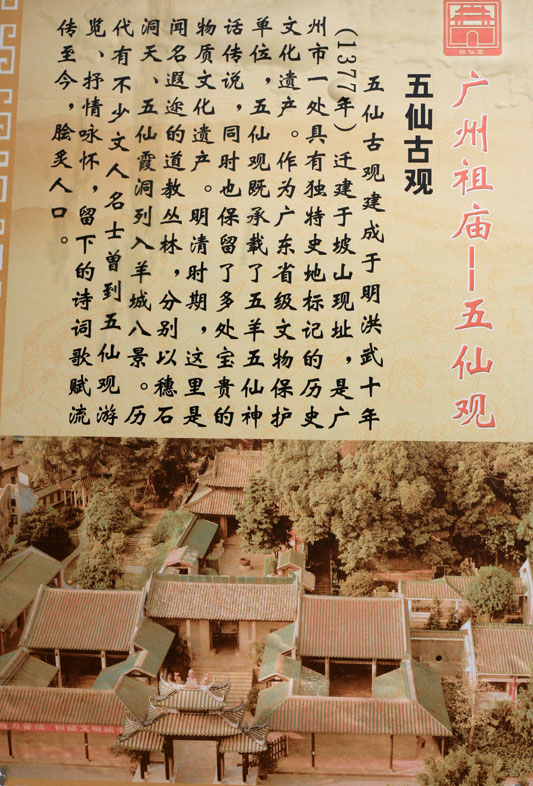 广州祖庙——五仙观
五仙古观
五仙古观建成于明洪武十年
（1377年）迁建于坡山现址，是广
州市一处具有独特史地标记的历史
文化遗产。作为广东省级文物保护
单位，五仙观既承载了五羊五仙神
话传说，同时也保留了多处宝贵的
物质文化遗产。明清时期，这里是
闻名遐迩的道教丛林，分别以穗石
洞天、五仙霞洞列入羊城八景。历
代有不少文人名士曾到五仙观游
览、抒情咏怀，留下的诗词歌赋流
传至今，脍炙人口。